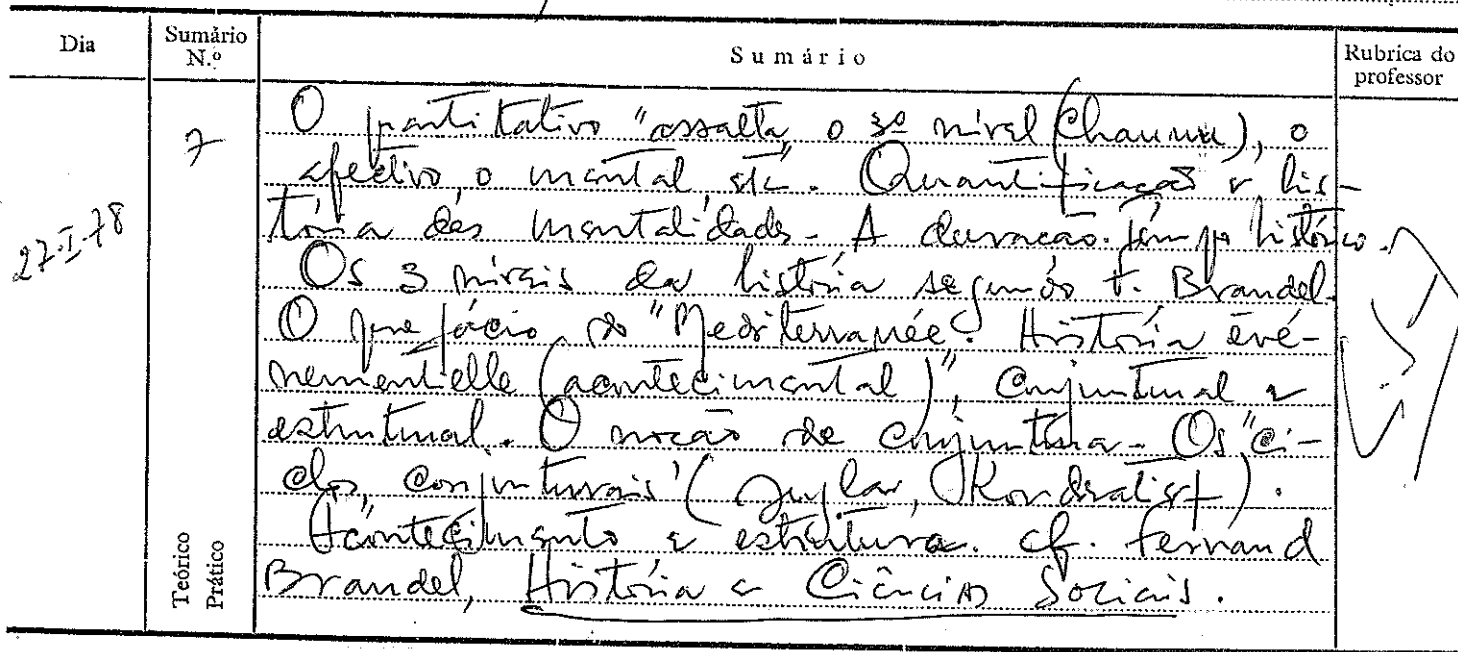 Dia
Sumário N.º
Sumário
Rubrica do professor
27-I-78
7
O quantitativo "assalta" o 3º nível (Chaunu), o
afectivo, o mental etc. Quantificação e his-
tória das mentalidades - A duração. Tempo histórico.
Os 3 níveis da história segundo F. Braudel.
O prefácio do "Mediterranée". História évé-
nementielle (acontecimental)", conjuntural e
estrutural. O noção de conjuntura - Os "ci-
clos conjunturais" (Juglar, Kondratieff).
Acontecimento e estrutura. cf. Fernand
Braudel, História e Ciências Sociais.
Teórico
Prático